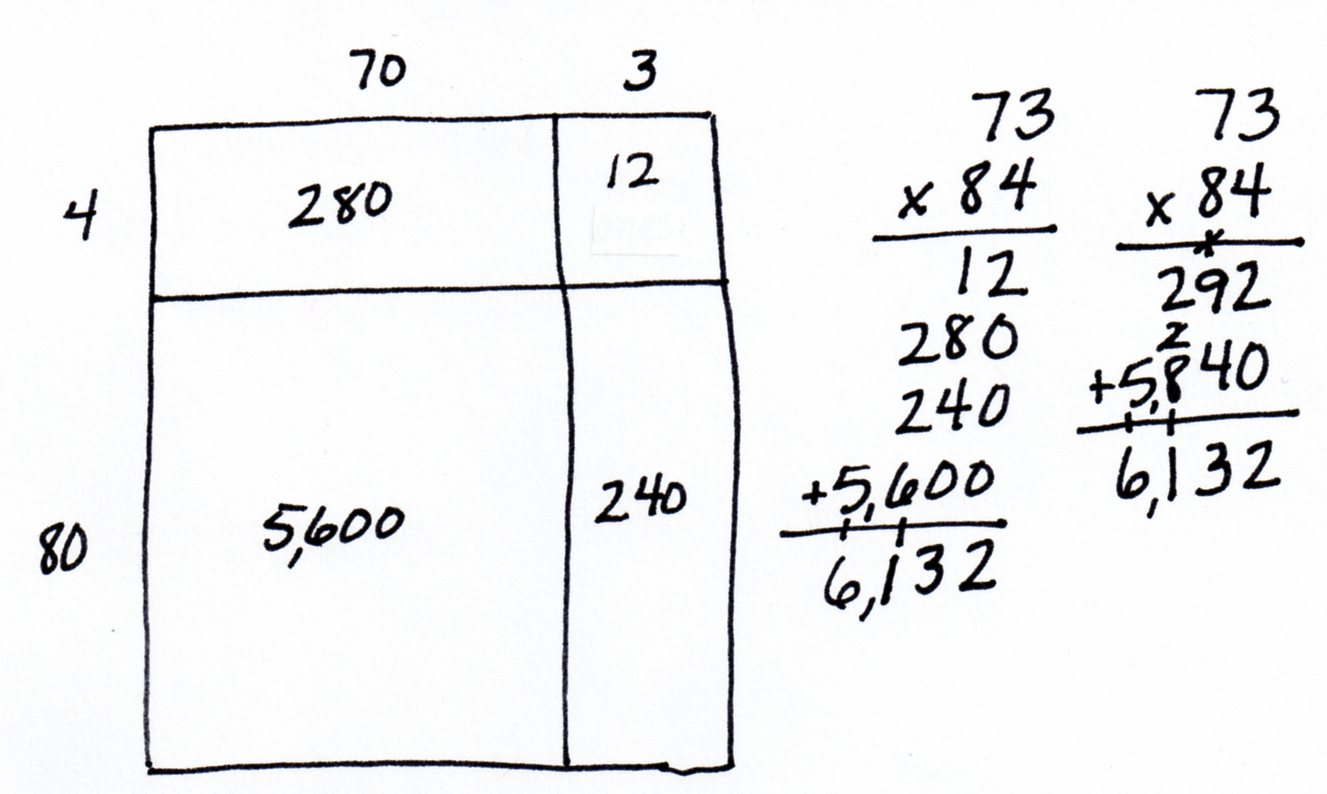 70 3
4 280 12
80 5,600 240
73
x 84
12
280
240
+5,600
6,132
73
x 84
292
2
+5,840
6,132